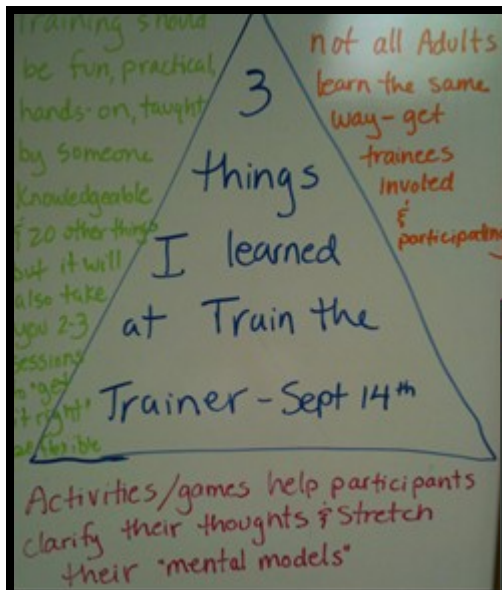 Training should
be fun, practical,
hands-on, taught
by someone
knowledgeable
& 20 other things
but it will
also take
you 2-3
sessions
to "get
it right"
3
things
I learned
at Train the
Trainer - Sept 14th
not all Adults
learn the same
way - get
trainees
involed
&
participating
Activities/games help participants
clarify their thoughts & Stretch
their "mental models"